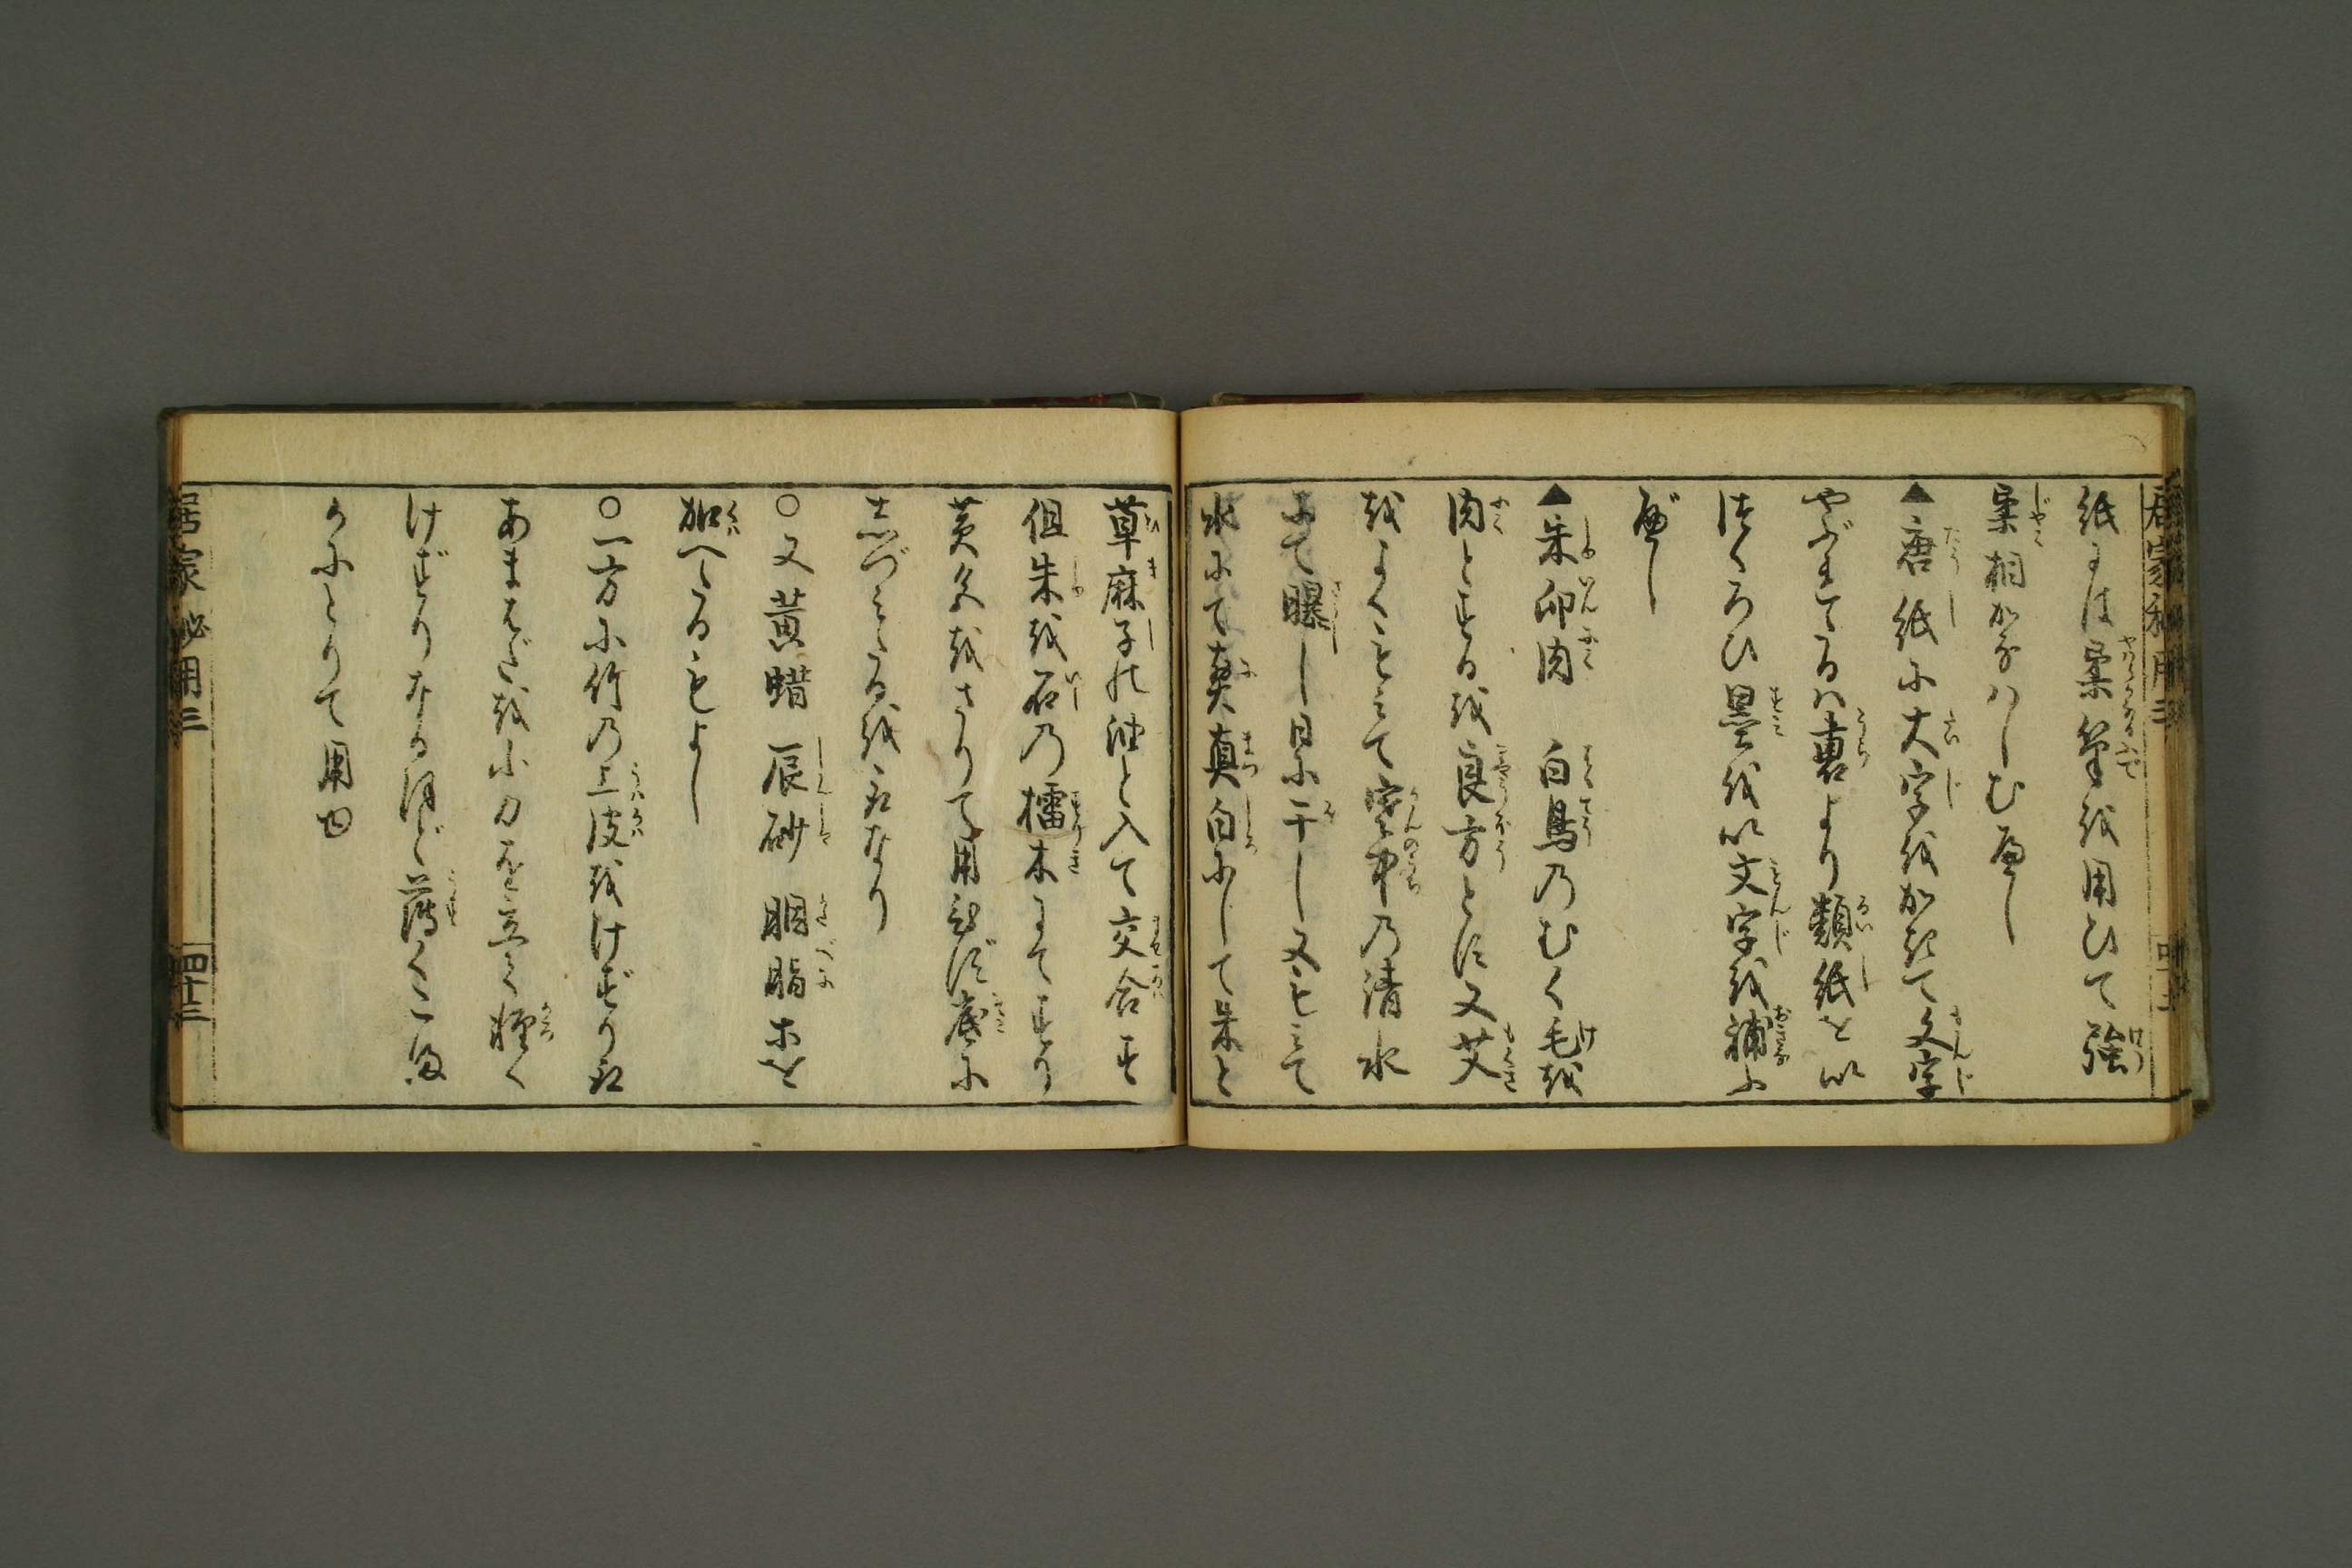 紙には柔筆を用ひて強
柔相かなハしむべし
▲唐紙に大字をかきて文字
やぶれたるハ裏より類紙を以
つくろひ墨を以文字を補ふ
べし
▲朱印肉 白鳥のむく毛を
肉とする を良方とす又艾
をよくもみて寒中の清水
にて曝し日に干し又もみて
水にて真白にして朱と
草麻子の油と入て交合す
但朱を石の擂木にてすり
黄久をさりて用ひず底に
しづみたるを取なり
○又黄蝋 辰砂 臙脂ホを
加へたるもよし
○一方に竹の上皮をけずり取
あまはだを小刀を立て軽く
けずりなるほど薄くこま
かにとりて用ゆ
居家秘用三
四十三